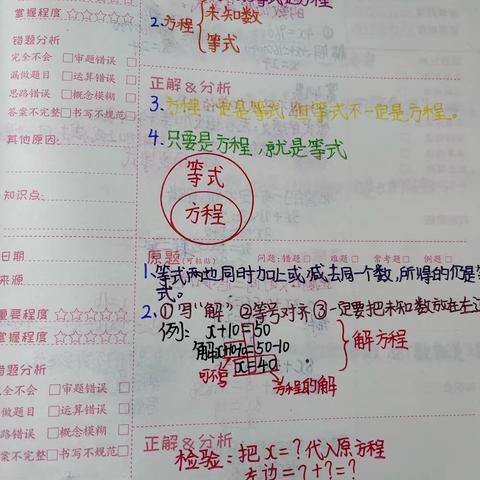 掌握程度 ☆☆☆☆☆
错题分析
完全不会□ 审题错误□
漏做题目□ 运算错误□
思路错误□ 概念模糊□
答案不完整□ 书写不规范□
其他原因:
知识点:
日期
来源
重要程度 ☆☆☆☆☆
掌握程度 ☆☆☆☆☆
错题分析
完全不会□ 审题错误□
漏做题目□ 运算错误□
思路错误□ 概念模糊□
答案不完整□ 书写不规范□
2.方程{未知数
等式
正解&分析
3.方程一定是等式,但等式不一定是方程。
4.只要是方程,就是等式
等式
方程
原题(可粘贴) 问题:错题□ 难题□ 常考题□ 例题□
1.等式两边同时加上或减去同一个数,所得的仍是等
式。
2.①写“解”②等号对齐③一定要把未知数放在左边
例: x+10=50
解:x+10-10=50-10
x=40
}解方程
可不写
方程的解
正解&分析
检验:把x=?代入原方程
左边=?+?=?